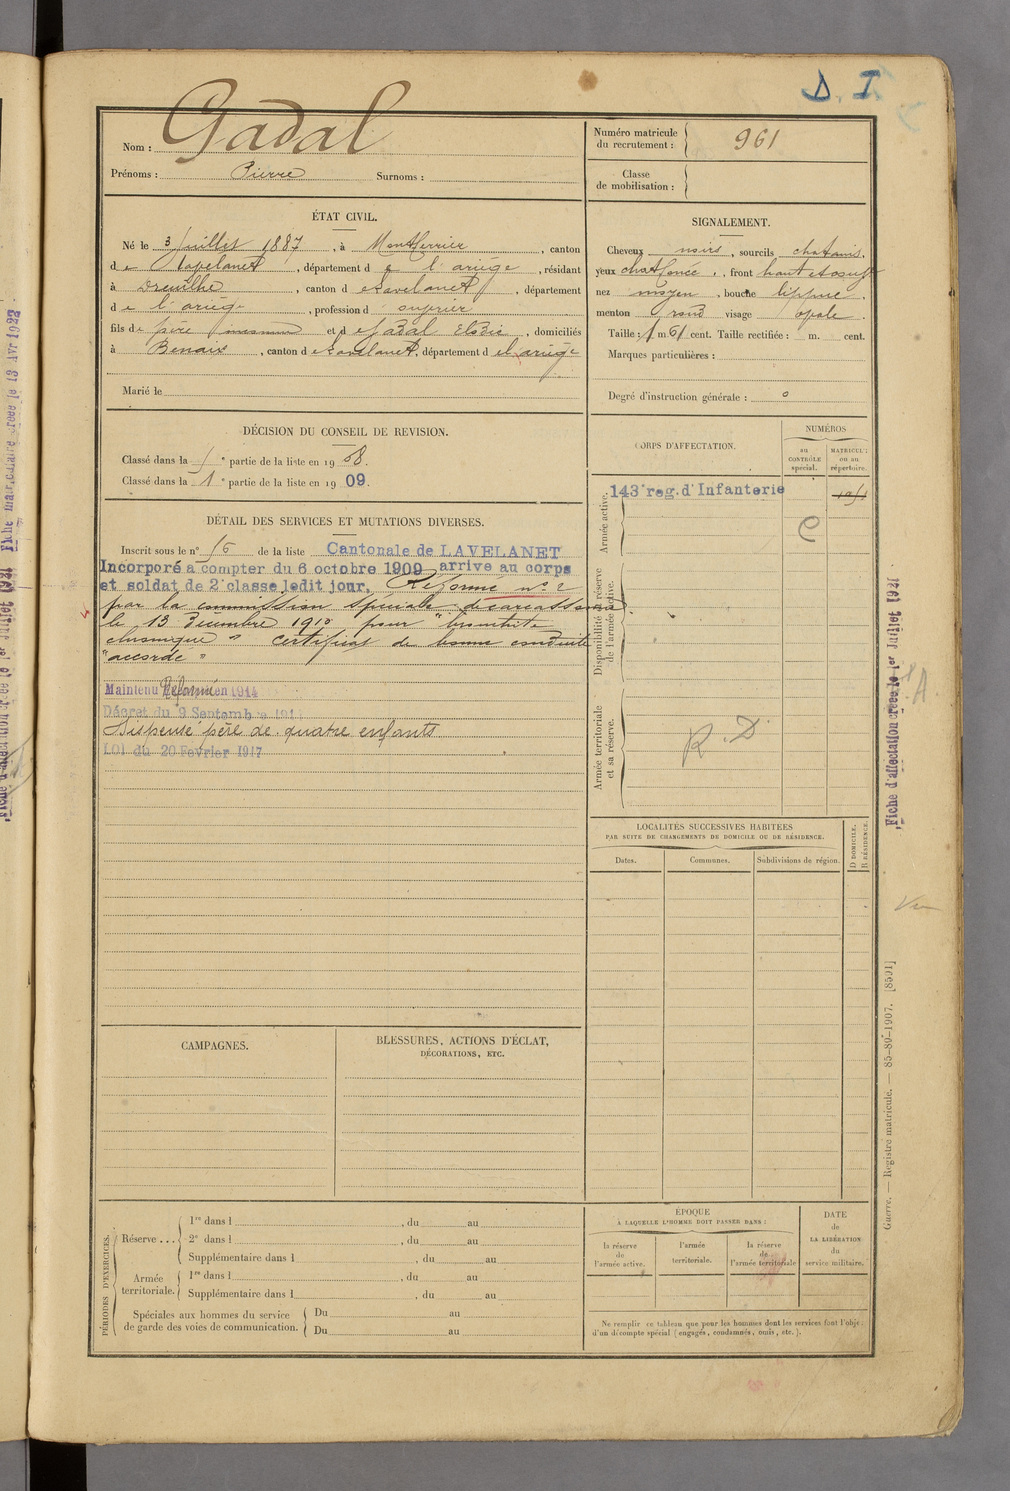 D. I.
Nom : Gadal
Prénoms : Pierre Surnoms :
Numéro matricule
du recrutement : 961
Classe
de mobilisation :
ÉTAT CIVIL.
Né le 3 Juillet 1887, à Montferrier, canton
de Lavelanet, département de l'ariège, résidant
à Dreuilhe, canton de Lavelanet, département
de l'ariège, profession d
fils de père et de Gadal Elodie, domiciliés
à Benaix, canton de Lavelanet, département de l'ariège
Marié le
SIGNALEMENT.
Cheveux noirs, sourcils chatains,
yeux chat foncé, front haut et
nez moyen, bouche lippue,
menton rond visage ovale.
Taille : 1 m. 61 cent. Taille rectifiée : m. cent.
Marques particulières :
Degré d'instruction générale : 0
DÉCISION DU CONSEIL DE REVISION.
Classé dans la 1e partie de la liste en 1908.
Classé dans la 1e partie de la liste en 1909.
DÉTAIL DES SERVICES ET MUTATIONS DIVERSES.
Inscrit sous le n° 16 de la liste Cantonale de LAVELANET
Incorporé à compter du 6 octobre 1909 arrive au corps
et soldat de 2e classe ledit jour. Réformé n° 2
par la commission spéciale de carcassonne
le 13 Décembre 1910 pour "bronchite
chronique" certificat de bonne conduite
"accordé"
Maintenu Réformé en 1914
Décret du 9 Septembre 1914
Dispensé père de quatre enfants
LOI du 20 Fevrier 1917
CORPS D'AFFECTATION.
NUMÉROS
au
CONTRÔLE
spécial.
MATRICULE
ou au
répertoire.
Armée active.
143e reg. d'Infanterie
Disponibilité et réserve
de l'armée active.
Armée territoriale
et sa réserve.
R.D
LOCALITÉS SUCCESSIVES HABITÉES
PAR SUITE DE CHANGEMENTS DE DOMICILE OU DE RÉSIDENCE.
Dates.
Communes.
Subdivisions de région.
D DOMICILE.
R RÉSIDENCE.
CAMPAGNES.
BLESSURES, ACTIONS D'ÉCLAT,
DÉCORATIONS, ETC.
PÉRIODES D'EXERCICES.
Réserve ...
1re dans l , du au
2e dans l , du au
Supplémentaire dans l , du au
Armée
territoriale.
1re dans l , du au
Supplémentaire dans l , du au
Spéciales aux hommes du service
de garde des voies de communication.
Du au
Du au
ÉPOQUE
À LAQUELLE L'HOMME DOIT PASSER DANS :
la réserve
de
l'armée active.
l'armée
territoriale.
la réserve
de
l'armée territoriale
DATE
de
LA LIBÉRATION
du
service militaire.
Ne remplir ce tableau que pour les hommes dont les services font l'objet
d'un décompte spécial (engagés, condamnés, omis, etc.).
Fiche d'affectation créée le 1er Juillet 1921
Guerre. — Registre matricule. — 85-89-1907. [8591]